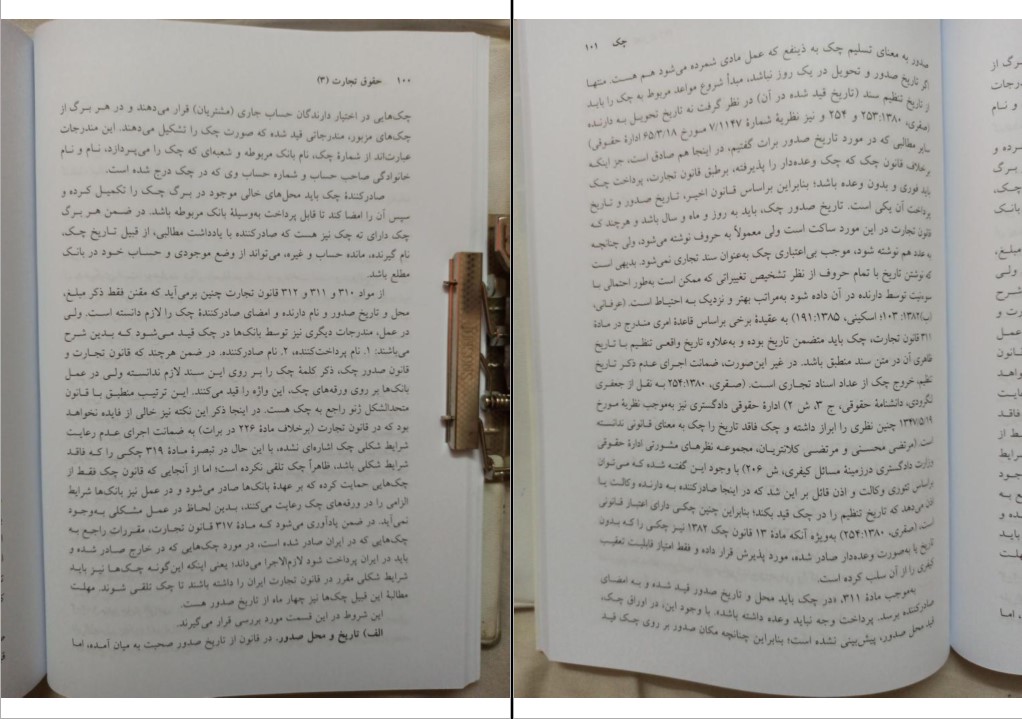 ۱۰۰ حقوق تجارت (۳)
چک‌هایی در اختیار دارندگان حساب جاری (مشتریان) قرار می‌دهند و در هر برگ از
چک‌های مزبور، مندرجاتی قید شده که صورت چک را تشکیل می‌دهند. این مندرجات
عبارت‌اند از شمارهٔ چک، نام بانک مربوطه و شعبه‌ای که چک را می‌پردازد، نام و نام
خانوادگی صاحب حساب و شماره حساب وی که در چک درج شده است.
صادرکنندهٔ چک باید محل‌های خالی موجود در برگ چک را تکمیل کرده و
سپس آن را امضا کند تا قابل پرداخت به‌وسیلهٔ بانک مربوطه باشد. در ضمن هر برگ
چک دارای ته چک نیز هست که صادرکننده با یادداشت مطالبی، از قبیل تاریخ چک،
نام گیرنده، مانده حساب و غیره، می‌تواند از وضع موجودی و حساب خود در بانک
مطلع باشد.
از مواد ۳۱۰ و ۳۱۱ و ۳۱۲ قانون تجارت چنین برمی‌آید که مقنن فقط ذکر مبلغ،
محل و تاریخ صدور و نام دارنده و امضای صادرکنندهٔ چک را لازم دانسته است. ولی
در عمل، مندرجات دیگری نیز توسط بانک‌ها در چک قید می‌شود که بدین شرح
می‌باشند: ۱. نام پرداخت‌کننده، ۲. نام صادرکننده. در ضمن هرچند که قانون تجارت و
قانون صدور چک، ذکر کلمهٔ چک را بر روی این سند لازم ندانسته ولی در عمل
بانک‌ها بر روی ورقه‌های چک، این واژه را قید می‌کنند. این ترتیب منطبق با قانون
متحدالشکل ژنو راجع به چک هست. در اینجا ذکر این نکته نیز خالی از فایده نخواهد
بود که در قانون تجارت (برخلاف مادهٔ ۲۲۶ در برات) به ضمانت اجرای عدم رعایت
شرایط شکلی چک اشاره‌ای نشده، با این حال در تبصرهٔ مادهٔ ۳۱۹ چکی را که فاقد
شرایط شکلی باشد، ظاهراً چک تلقی نکرده است؛ اما از آنجایی که قانون چک فقط از
چک‌هایی حمایت کرده که بر عهدهٔ بانک‌ها صادر می‌شود و در عمل نیز بانک‌ها شرایط
الزامی را در ورقه‌های چک رعایت می‌کنند، بدین لحاظ در عمل مشکلی به‌وجود
نمی‌آید. در ضمن یادآوری می‌شود که مادهٔ ۳۱۷ قانون تجارت، مقررات راجع به
چک‌هایی که در ایران صادر شده است، در مورد چک‌هایی که در خارج صادر شده و
باید در ایران پرداخت شود لازم‌الاجرا می‌داند؛ یعنی اینکه این‌گونه چک‌ها نیز باید
شرایط شکلی مقرر در قانون تجارت ایران را داشته باشند تا چک تلقی شوند. مهلت
مطالبهٔ این قبیل چک‌ها نیز چهار ماه از تاریخ صدور هست.
این شروط در این قسمت مورد بررسی قرار می‌گیرند.
الف) تاریخ و محل صدور. در قانون از تاریخ صدور صحبت به میان آمده، اما
چک ۱۰۱
صدور به معنای تسلیم چک به ذینفع که عمل مادی شمرده می‌شود هم هست. منتها
اگر تاریخ صدور و تحویل در یک روز نباشد، مبدأ شروع مواعد مربوط به چک را باید
از تاریخ تنظیم سند (تاریخ قید شده در آن) در نظر گرفت نه تاریخ تحویل به دارنده
(صقری، ۲۵۳:۱۳۸۰ و ۲۵۴ و نیز نظریهٔ شمارهٔ ۷/۱۱۴۷ مورخ ۶۵/۳/۱۸ ادارهٔ حقوقی)
سایر مطالبی که در مورد تاریخ صدور برات گفتیم، در اینجا هم صادق است، جز اینکه
برخلاف قانون چک که چک وعده‌دار را پذیرفته، برطبق قانون تجارت، پرداخت چک
باید فوری و بدون وعده باشد؛ بنابراین براساس قانون اخیر، تاریخ صدور و تاریخ
پرداخت آن یکی است. تاریخ صدور چک، باید به روز و ماه و سال باشد و هرچند که
قانون تجارت در این مورد ساکت است ولی معمولاً به حروف نوشته می‌شود، ولی چنانچه
به عدد هم نوشته شود، موجب بی‌اعتباری چک به‌عنوان سند تجاری نمی‌شود. بدیهی است
که نوشتن تاریخ با تمام حروف از نظر تشخیص تغییراتی که ممکن است به‌طور احتمالی با
سوءنیت توسط دارنده در آن داده شود به‌مراتب بهتر و نزدیک به احتیاط است. (عرفانی،
۱۳۸۲: ۱۰۳؛ اسکینی، ۱۳۸۵: ۱۹۱) به عقیدهٔ برخی براساس قاعدهٔ امری مندرج در مادهٔ
۳۱۱ قانون تجارت، چک باید متضمن تاریخ بوده و به‌علاوه تاریخ واقعی تنظیم با تاریخ
ظاهری آن در متن سند منطبق باشد. در غیر این‌صورت، ضمانت اجرای عدم ذکر تاریخ
تنظیم، خروج چک از عداد اسناد تجاری است. (صقری، ۲۵۴:۱۳۸۰ به نقل از جعفری
لنگرودی، دانشنامهٔ حقوقی، ج ۳، ش ۲) ادارهٔ حقوقی دادگستری نیز به‌موجب نظریهٔ مورخ
۱۳۴۷/۵/۱۹ چنین نظری را ابراز داشته و چک فاقد تاریخ را چک به معنای قانونی ندانسته
است. (مرتضی محسنی و مرتضی کلانتریان، مجموعه نظرهای مشورتی ادارهٔ حقوقی
وزارت دادگستری درزمینهٔ مسائل کیفری، ش ۲۰۶) با وجود این گفته شده که می‌توان
براساس تئوری وکالت و اذن قائل بر این شد که در اینجا صادرکننده به دارنده وکالت یا
اذن می‌دهد که تاریخ تنظیم را در چک قید بکند؛ بنابراین چنین چکی دارای اعتبار قانونی
است، (صقری، ۲۵۴:۱۳۸۰) به‌ویژه آنکه مادهٔ ۱۳ قانون چک ۱۳۸۲ نیز چکی را که بدون
تاریخ یا به‌صورت وعده‌دار صادر شده، مورد پذیرش قرار داده و فقط امتیاز قابلیت تعقیب
کیفری را از آن سلب کرده است.
به‌موجب مادهٔ ۳۱۱، «در چک باید محل و تاریخ صدور قید شده و به امضای
صادرکننده برسد. پرداخت وجه نباید وعده داشته باشد». با وجود این، در اوراق چک،
قید محل صدور، پیش‌بینی نشده است؛ بنابراین چنانچه مکان صدور بر روی چک قید